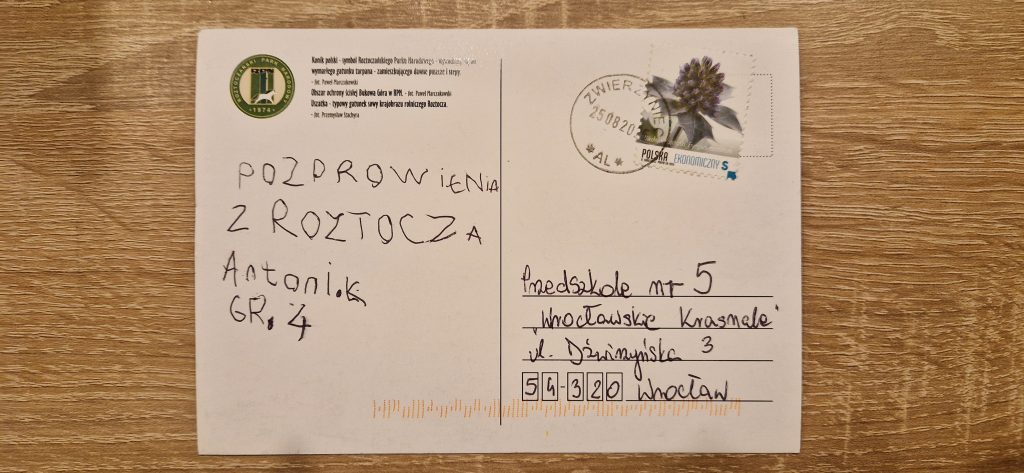 ROZTOCZAŃSKI PARK NARODOWY
• 1974 •
Konik polski - symbol Roztoczańskiego Parku Narodowego -
wymarłego gatunku tarpana - zamieszkującego dawne puszcze i stepy.
- fot. Paweł Marczakowski
Obszar ochrony ścisłej Bukowa Góra w RPN. - fot. Paweł Marczakowski
Uszatka - typowy gatunek sowy krajobrazu rolniczego Roztocza.
- fot. Przemysław Stachyra
ZWIERZYNIEC
25.08.20
*AL*
POLSKA EKONOMICZNY S
POZDROWIENIA
Z ROZTOCZA
Antoni.K
GR. 4
Przedszkole nr 5
"Wrocławskie Krasnale"
ul. Dźwirzyńska 3
54-320 Wrocław